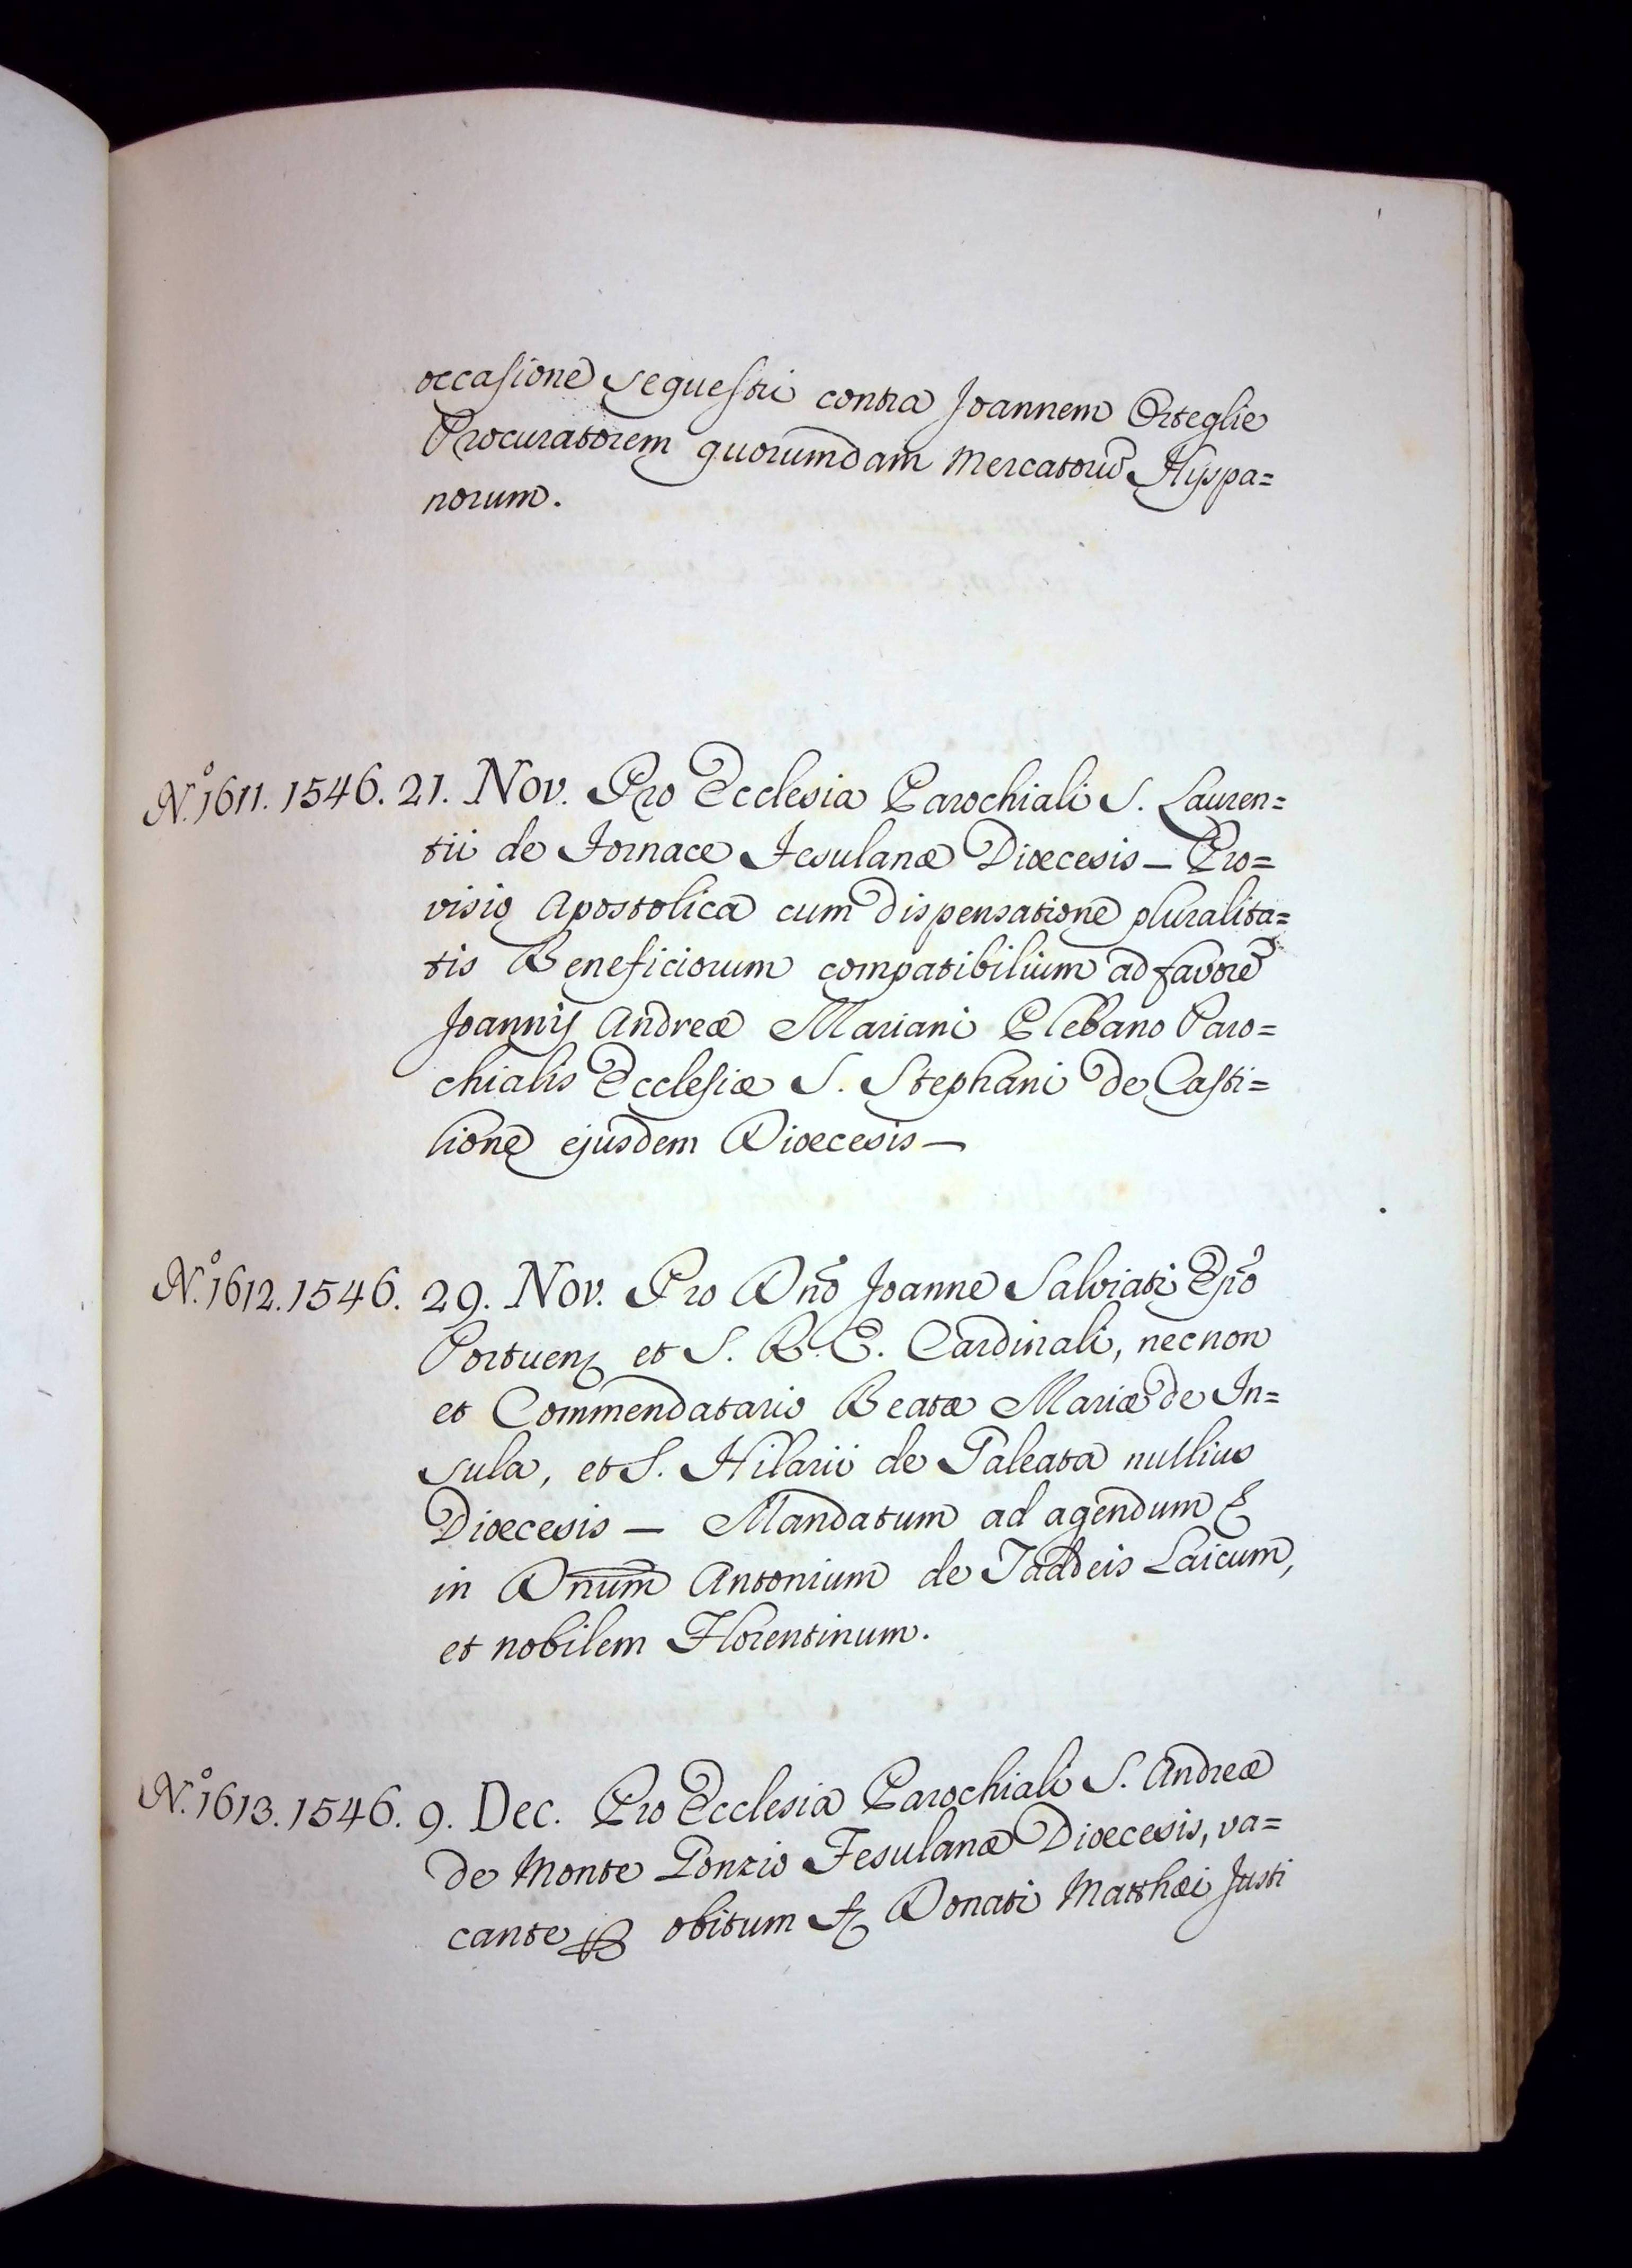 occasione sequestri contra Joannem Orteglie
Procuratorem quorumdam Mercatorū Hyspa=
norum.
N.º 1611. 1546. 21. Nov. Pro Ecclesia Parochiali S. Lauren=
tii de Fornace Fesulanæ Diœcesis — Pro=
visio Apostolica cum dispensatione pluralita=
tis Beneficiorum compatibilium ad favorē
Joannis Andreæ Mariani Plebano Paro=
chialis Ecclesiæ S. Stephani de Casti=
lione ejusdem Diœcesis —
N.º 1612. 1546. 29. Nov. Pro Dn̄o Joanne Salviati Ep̄o
Portuen̄ et S. R. E. Cardinali, necnon
et Commendatario Beatæ Mariæ de In=
sula, et S. Hilarii de Galeata nullius
Diœcesis — Mandatum ad agendum &
in Dn̄um Antonium de Taddeis Laicum,
et nobilem Florentinum.
N.º 1613. 1546. 9. Dec. Pro Ecclesia Parochiali S. Andreæ
de Monte Gonzio Fesulanæ Diœcesis, va=
cante obitum Donati Matthæi Justi